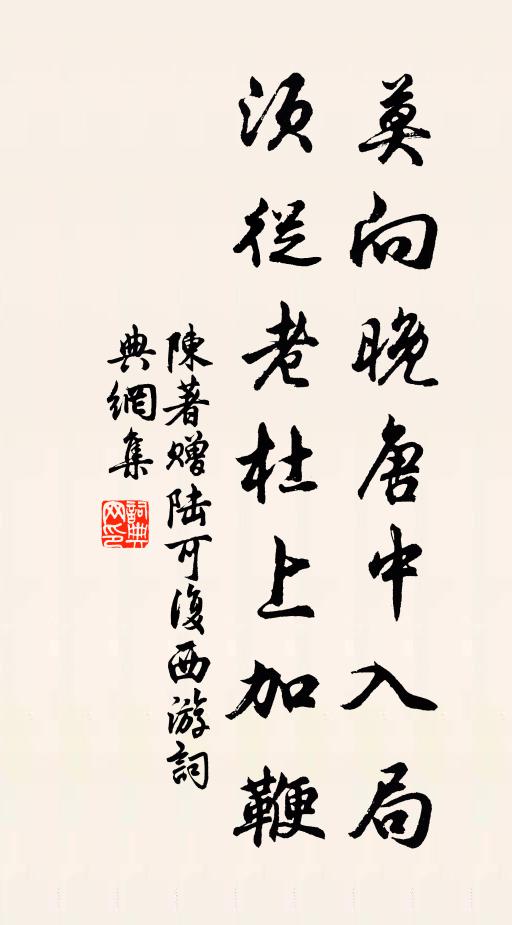 莫向晚唐中入局
須從老杜上加鞭
陳著贈陆可復西游詞
典網集
詞典
网印